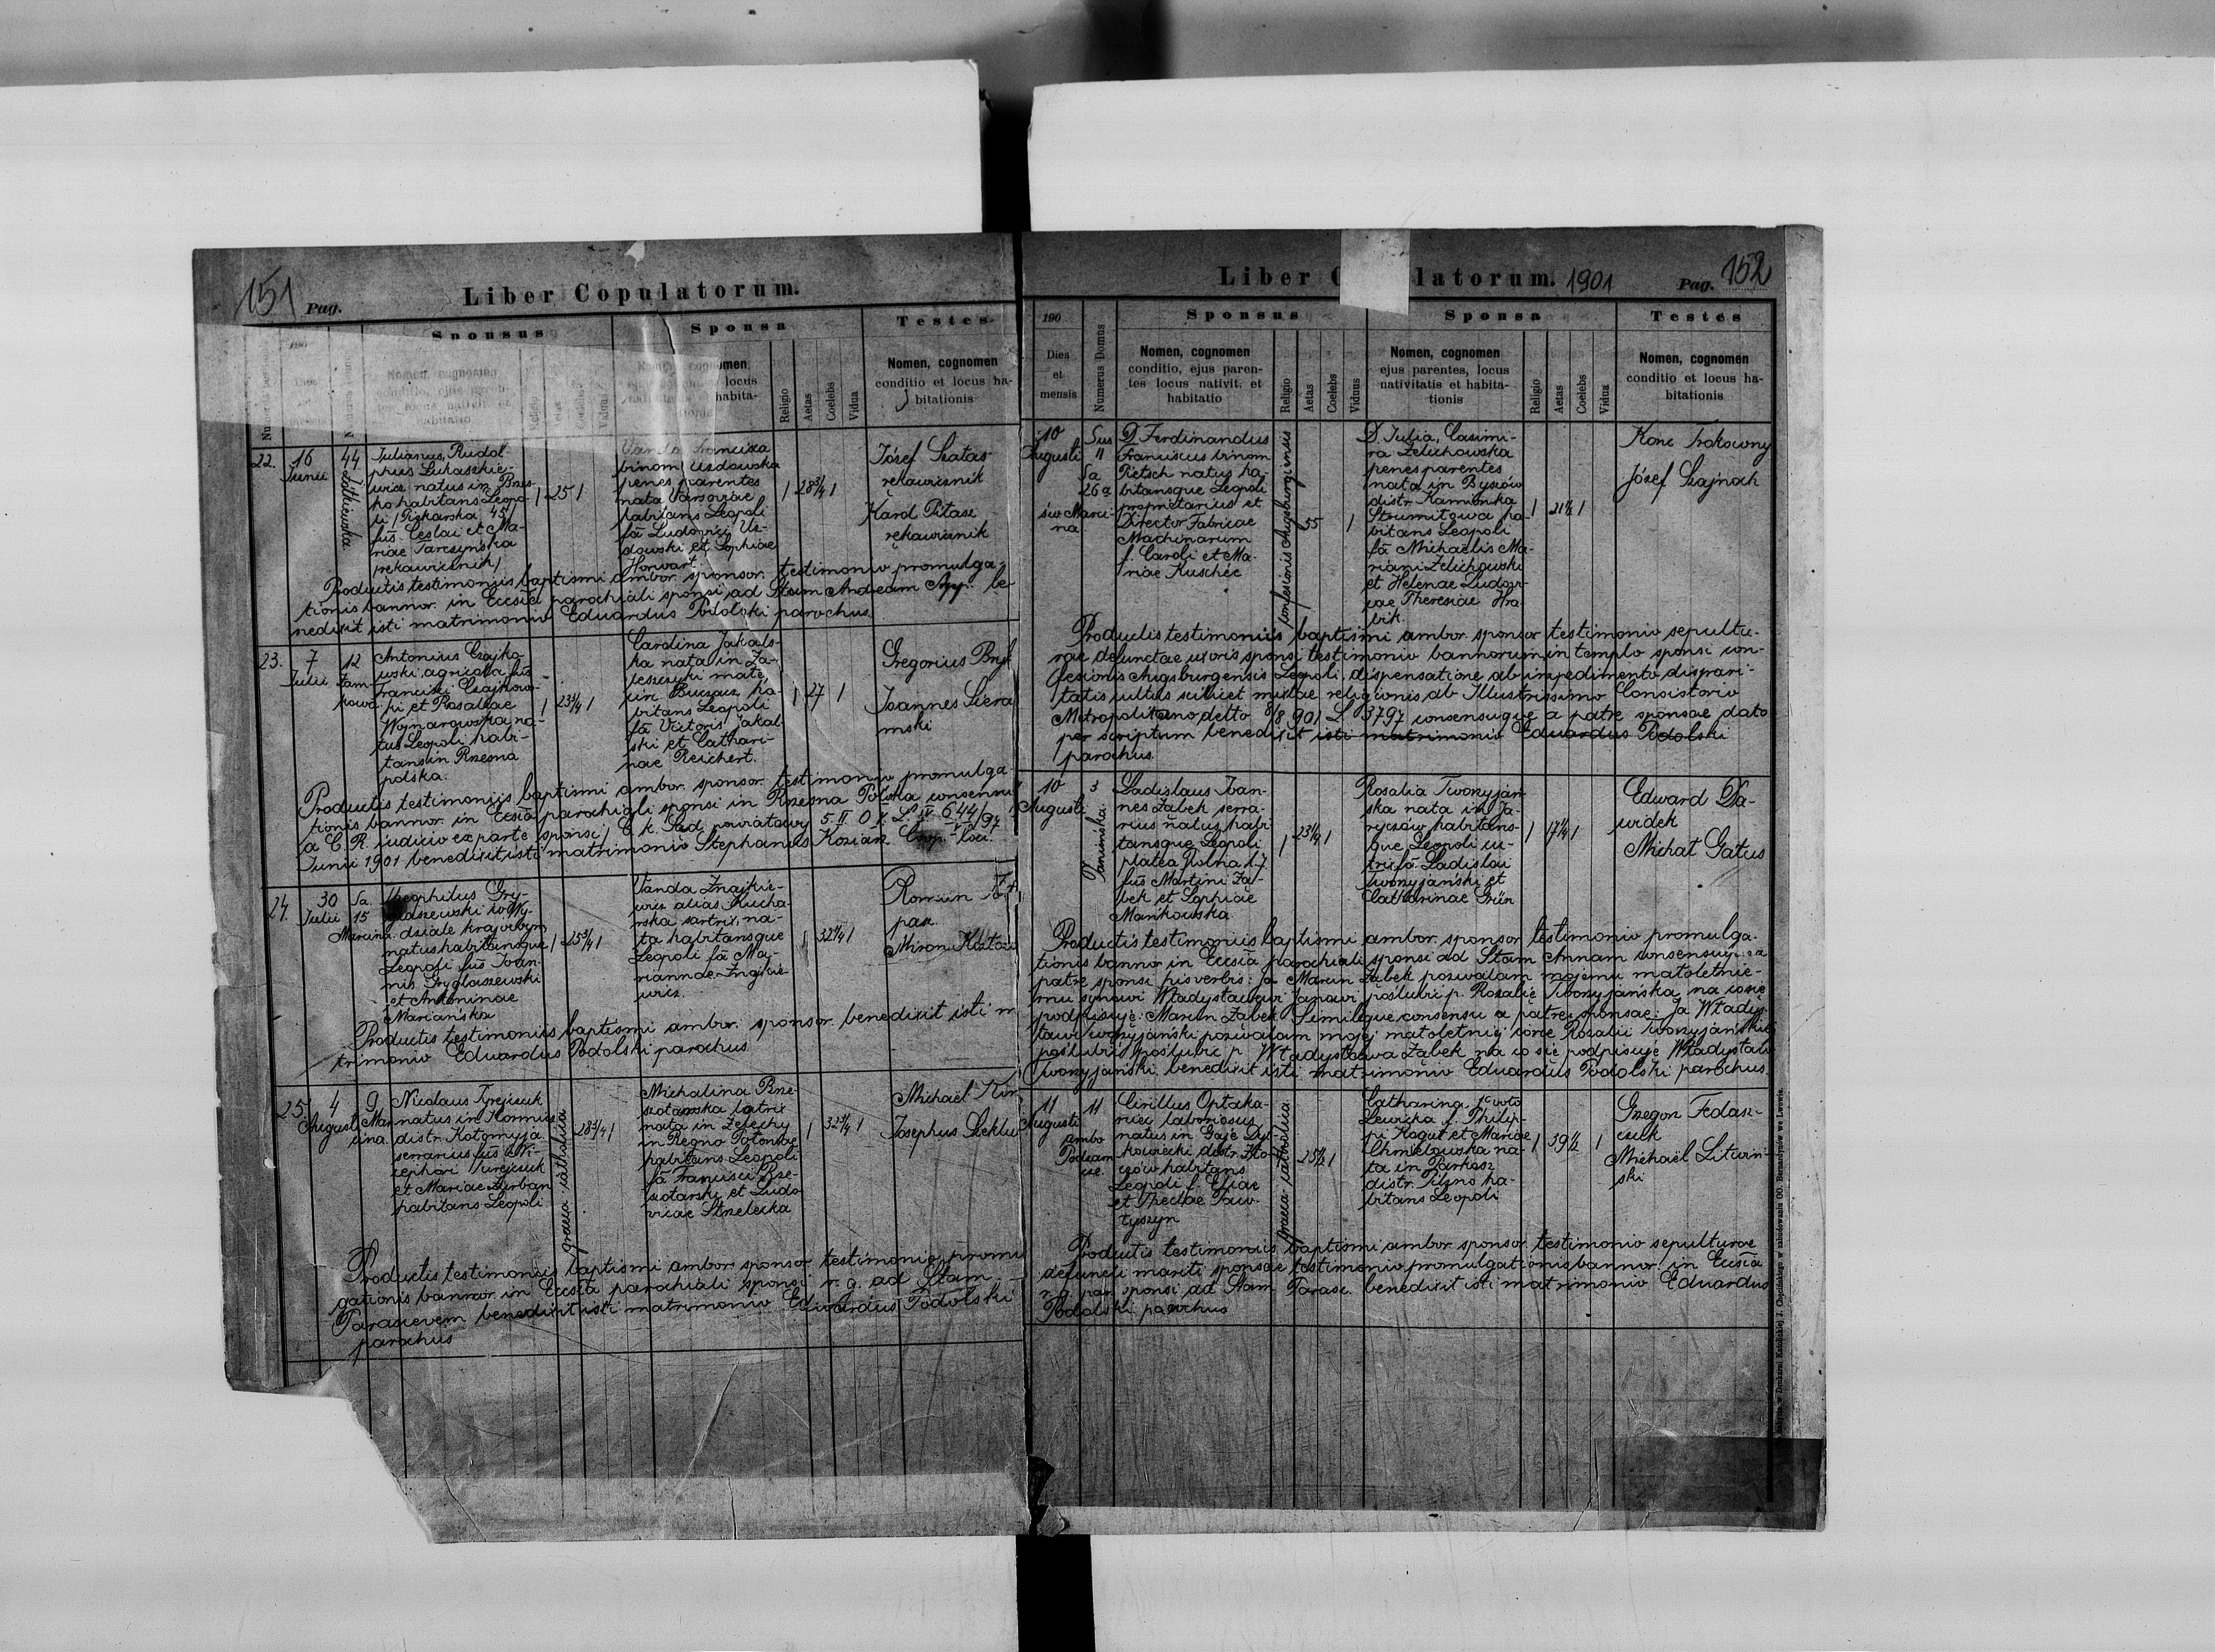 151 Pag.
Liber Copulatorum.
Sponsus
Sponsa
Testes
Nomen, cognomen
conditio, ejus paren-
tes locus nativit. et
habitatio
locus
habita-
Religio
Aetas
Coelebs
Vidua
Nomen, cognomen
conditio et locus ha-
bitationis
22.
16
Junii
44
Żółkiewska
Julianus, Rudol-
phus Łukaszkie-
wicz natus in Brzus-
habitans Leopo-
li / Piekarska 45/
fūs Ceslai et Ma-
riae Tarczyńska
rękawicznik/
1
25
1
Vanda Francisca
binom/ Uzdowska
penes parentes
nata Varsoviae
habitans Leopoli
fā Ludovici Uz-
dowski et Sophiae
Horwart.
1
28 3/4
1
Józef Szatas
rękawicznik
Karol Pitasz
rękawicznik
Productis testimoniis baptismi ambor. sponsor. testimonio promulga-
tionis bannor. in Eccsia parochiali sponsi ad Stum Andream App. be-
nedixit isti matrimonio Eduardus Podolski parochus.
23.
7
Julii
12
Antonius Czajko-
wski agricola fūs
Francisci Czajkows-
ki et Rosaliae
Wynarowska na-
tus Leopoli habi-
tans in Rzesna
polska.
1
23 1/4
1
Carolina Jakals-
ka nata in Za-
leszczyki małe
Buczacz ha-
bitans Leopoli
fā Victoris Jakal-
ski et Cathari-
nae Reichert.
1
27
1
Gregorius Bryk
Joannes Siera
mski
Productis testimoniis baptismi ambor. sponsor. testimonio promulga-
tionis bannor. in Eccsia parochiali sponsi in Rzesna Polska consensu
a C. R. judicio ex parte sponsi / C. k. Sąd powiatowy S. II. O IV L. IV 644/97
Junii 1901 benedixit isti matrimonio Stephanus Kozian. Coop. loci.
24.
30
Julii
Sa.
15
Marcina.
Theophilus Gry-
glaszewski w Wy-
dziale krajowym
natus habitansque
Leopoli fūs Joan-
nis Gryglaszewski
et Antoninae
Mariańska
1
25 3/4
1
Vanda Znajkie-
wicz alias Kucha-
rska sartrix, na-
ta habitansque
Leopoli fā Ma-
riannae Znajkie-
wicz.
1
32 1/4
1
Roman
Miron
Productis testimoniis baptismi ambor. sponsor. benedixit isti m
trimonio Eduardus Podolski parochus.
25.
4
Augusti
9
Mar
cina.
Nicolaus Tyrejczuk
natus in Kornicz
distr. Kołomyja
serrarius fūs Ni-
cephori Tyrejczuk
et Mariae Zurban
habitans Leopoli
graeca-catholica
28 3/4
1
Michalina Brze-
szotarska
nata in Żelechy
in Regno Poloniae
habitans Leopoli
fā Francisci Brze-
szotarski et Ludo
vicae Strzelecka
1
32 3/4
1
Michaël
Josephus
Productis testimoniis baptismi ambor sponsor testimonio promul
gationis bannor in Eccsia parochiali sponsi r. g. ad Stam
Parascevem benedixit isti matrimonio Eduardus Podolski
parochus
Liber C latorum. 1901
Pag. 152
190
Sponsus
Sponsa
Testes
Dies
et
mensis
Numerus Domus
Nomen, cognomen
conditio, ejus paren-
tes locus nativit. et
habitatio
Religio
Aetas
Coelebs
Viduus
Nomen, cognomen
ejus parentes, locus
nativitatis et habita-
tionis
Religio
Aetas
Coelebs
Vidua
Nomen, cognomen
conditio et locus ha-
bitationis
10
Augusti
Sa
26a
św Marci-
na
D. Ferdinandus
Franciscus binom
Pietsch natus ha-
bitansque Leopoli
proprietarius et
Director Fabricae
Machinarum
f. Caroli et Ma-
riae Kuschée
confesionis Augsburgiensis
55
1
D. Julia, Casimi-
ra Żelichowska
penes parentes
nata in Byszów
distr. Kamionka
Strumiłowa ha-
bitans Leopoli
fā Michaelis Ma-
riani Żelichowski
et Helenae Ludovi-
cae Theresiae Hra-
bik.
1
21 1/2
1
Józef Szajnoch
Productis testimoniis baptismi ambor. sponsor testimonio sepultu-
rae defunctae uxoris sponsi testimonio bannorum in templo sponsi con-
fesionis Augsburgensis Leopoli, dispensatione ab impedimento dispari-
tatis cultus scilicet mixtae religionis ab Illustrissimo Consistorio
Metropolitano ddto 8/8 901 L 3797 consensuque a patre sponsae dato
per scriptum benedixit isti matrimonio Eduardus Podolski
parochus.
10
Augusti
3
Janińska
Ladislaus Joan-
nes Ząbek serra-
rius natus habi
tansque Leopoli
platea Polna 17
fūs Martini Zą-
bek et Sophiae
Mańkowska.
1
23 1/4
1
Rosalia Tworzyjań
ska nata in Ja-
ryczów habitans-
que Leopoli cu-
trix fā Ladislai
Tworzyjański et
Catharinae Grün
1
17 1/4
1
Edward Da-
widek
Michał Gatus
Productis testimoniis baptismi ambor. sponsor testimonio promulga-
tionis bannor in Eccsia parochiali sponsi ad Stam Annam consensuque a
patre sponsi his verbis: ja Marcin Ząbek pozwalam mojemu małoletnie-
mu synowi Władysławowi Janowi poślubić p. Rozalię Tworzyjańską, na co się
podpisuję: Marcin Ząbek. Similique consensu a patre sponsae: Ja Włady-
sław Tworzyjański pozwalam mojej małoletniej córce Rozalii Tworzyjańskiej
poślubić poślubić p. Władysława Ząbek na co się podpisuję Władysław
Tworzyjański. benedixit isti matrimonio Eduardus Podolski parochus.
11
Augusti
11
ambo
Podzam-
cze.
Cirillus Optaka-
niec laboriosus
natus in Gaje Dyt-
kowiecki distr. Zło-
czów habitans
Leopoli f. Eliae
et Theclae Paw-
tyszyn
graeca-catholica
25 1/2
1
Catharina 1o voto
Lewicka f. Philip-
pi Kogut et Mariae
Chmielowska na-
ta in Parkosz
distr. Pilzno ha-
bitans Leopoli
1
39 1/2
1
Grzegorz Fedasz-
czuk
Michaël Litwin-
ski
Productis testimoniis baptismi ambor sponsor. testimonio sepulturae
defuncti mariti sponsae testimonio promulgationis bannor. in Eccsia
r. g. par. sponsi ad Stam Parasc. benedixit isti matrimonio Eduardus
Podolski parochus
w Drukarni Katolickiej J. Chęcińskiego w zabudowaniu OO. Bernardynów we Lwowie.